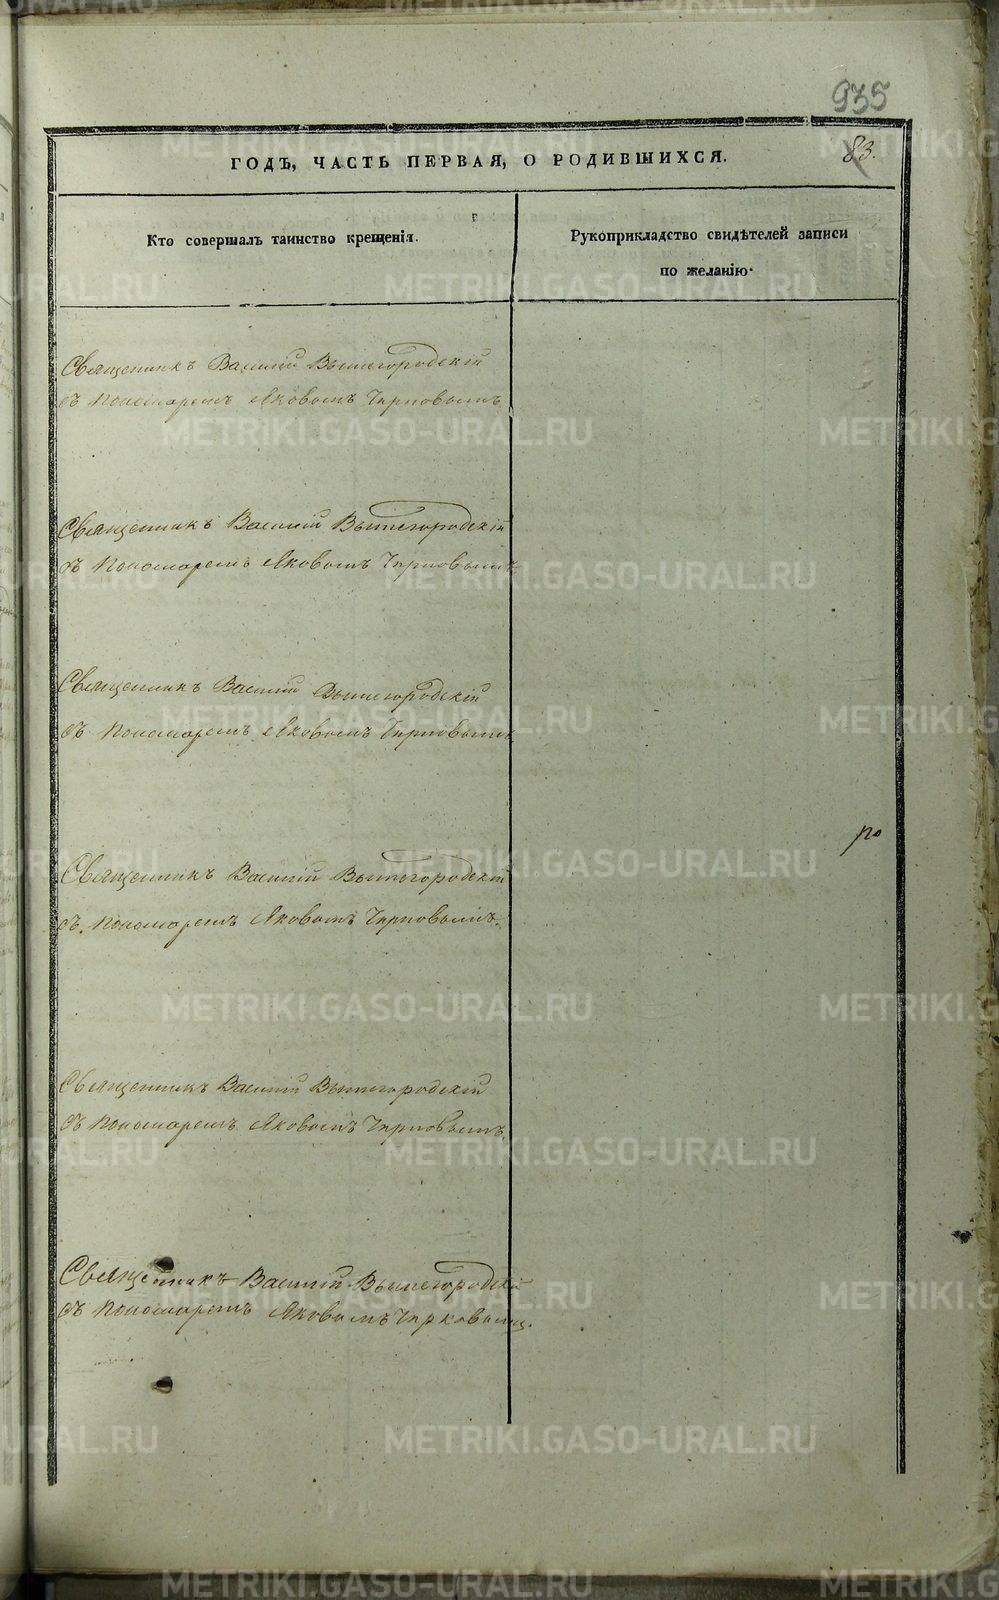 935
ГОДЪ, ЧАСТЬ ПЕРВАЯ, О РОДИВШИХСЯ.
83.
Кто совершалъ таинство крещенія.
Рукоприкладство свидѣтелей записи
по желанію.
Священникъ Василій Вышегородскій
съ Пономаремъ Яковомъ Черновымъ
Священникъ Василій Вышегородскій
съ Пономаремъ Яковомъ Черновымъ
Священникъ Василій Вышегородскій
съ Пономаремъ Яковомъ Черновымъ
по
Священникъ Василій Вышегородскій
съ Пономаремъ Яковомъ Черновымъ.
Священникъ Василій Вышегородскій
съ Пономаремъ Яковомъ Черновымъ.
Священникъ Василій Вышегородскій
съ Пономаремъ Яковомъ
METRIKI.GASO-URAL.RU